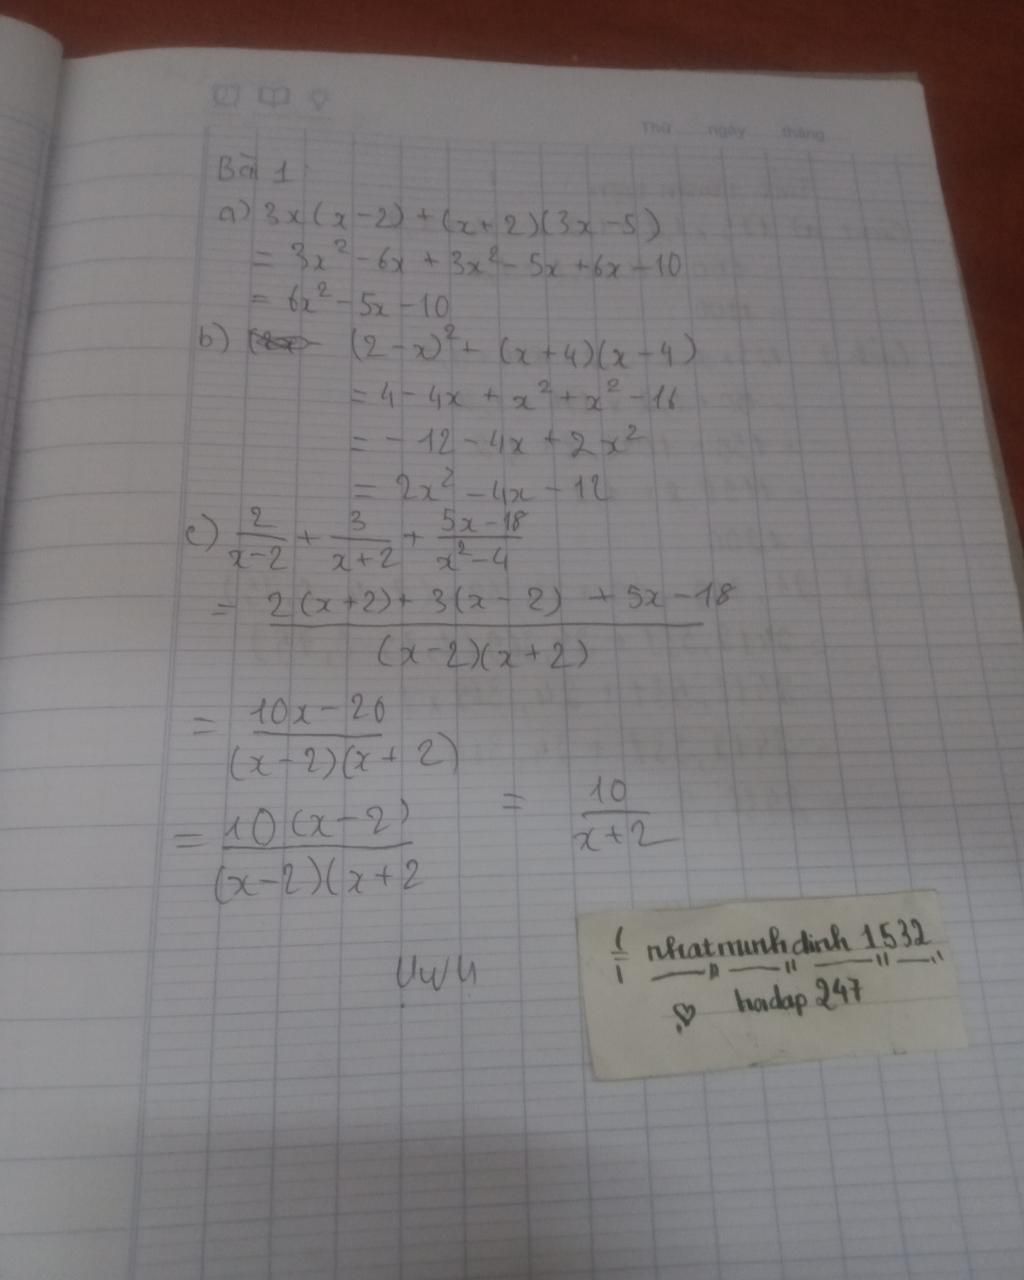 Thứ ngày tháng
Bài 1
a) 3x(x-2) + (x+2)(3x-5)
= 3x² - 6x + 3x² - 5x + 6x - 10
= 6x² - 5x - 10
b) (2-x)² + (x+4)(x-4)
= 4 - 4x + x² + x² - 16
= -12 - 4x + 2x²
= 2x² - 4x - 12
c) 2/(x-2) + 3/(x+2) + (5x-18)/(x²-4)
= (2(x+2) + 3(x-2) + 5x - 18)/((x-2)(x+2))
= (10x-20)/((x-2)(x+2))
= 10(x-2)/((x-2)(x+2 = 10/(x+2)
UwU
nhatminhdinh 1532
hoidap 247